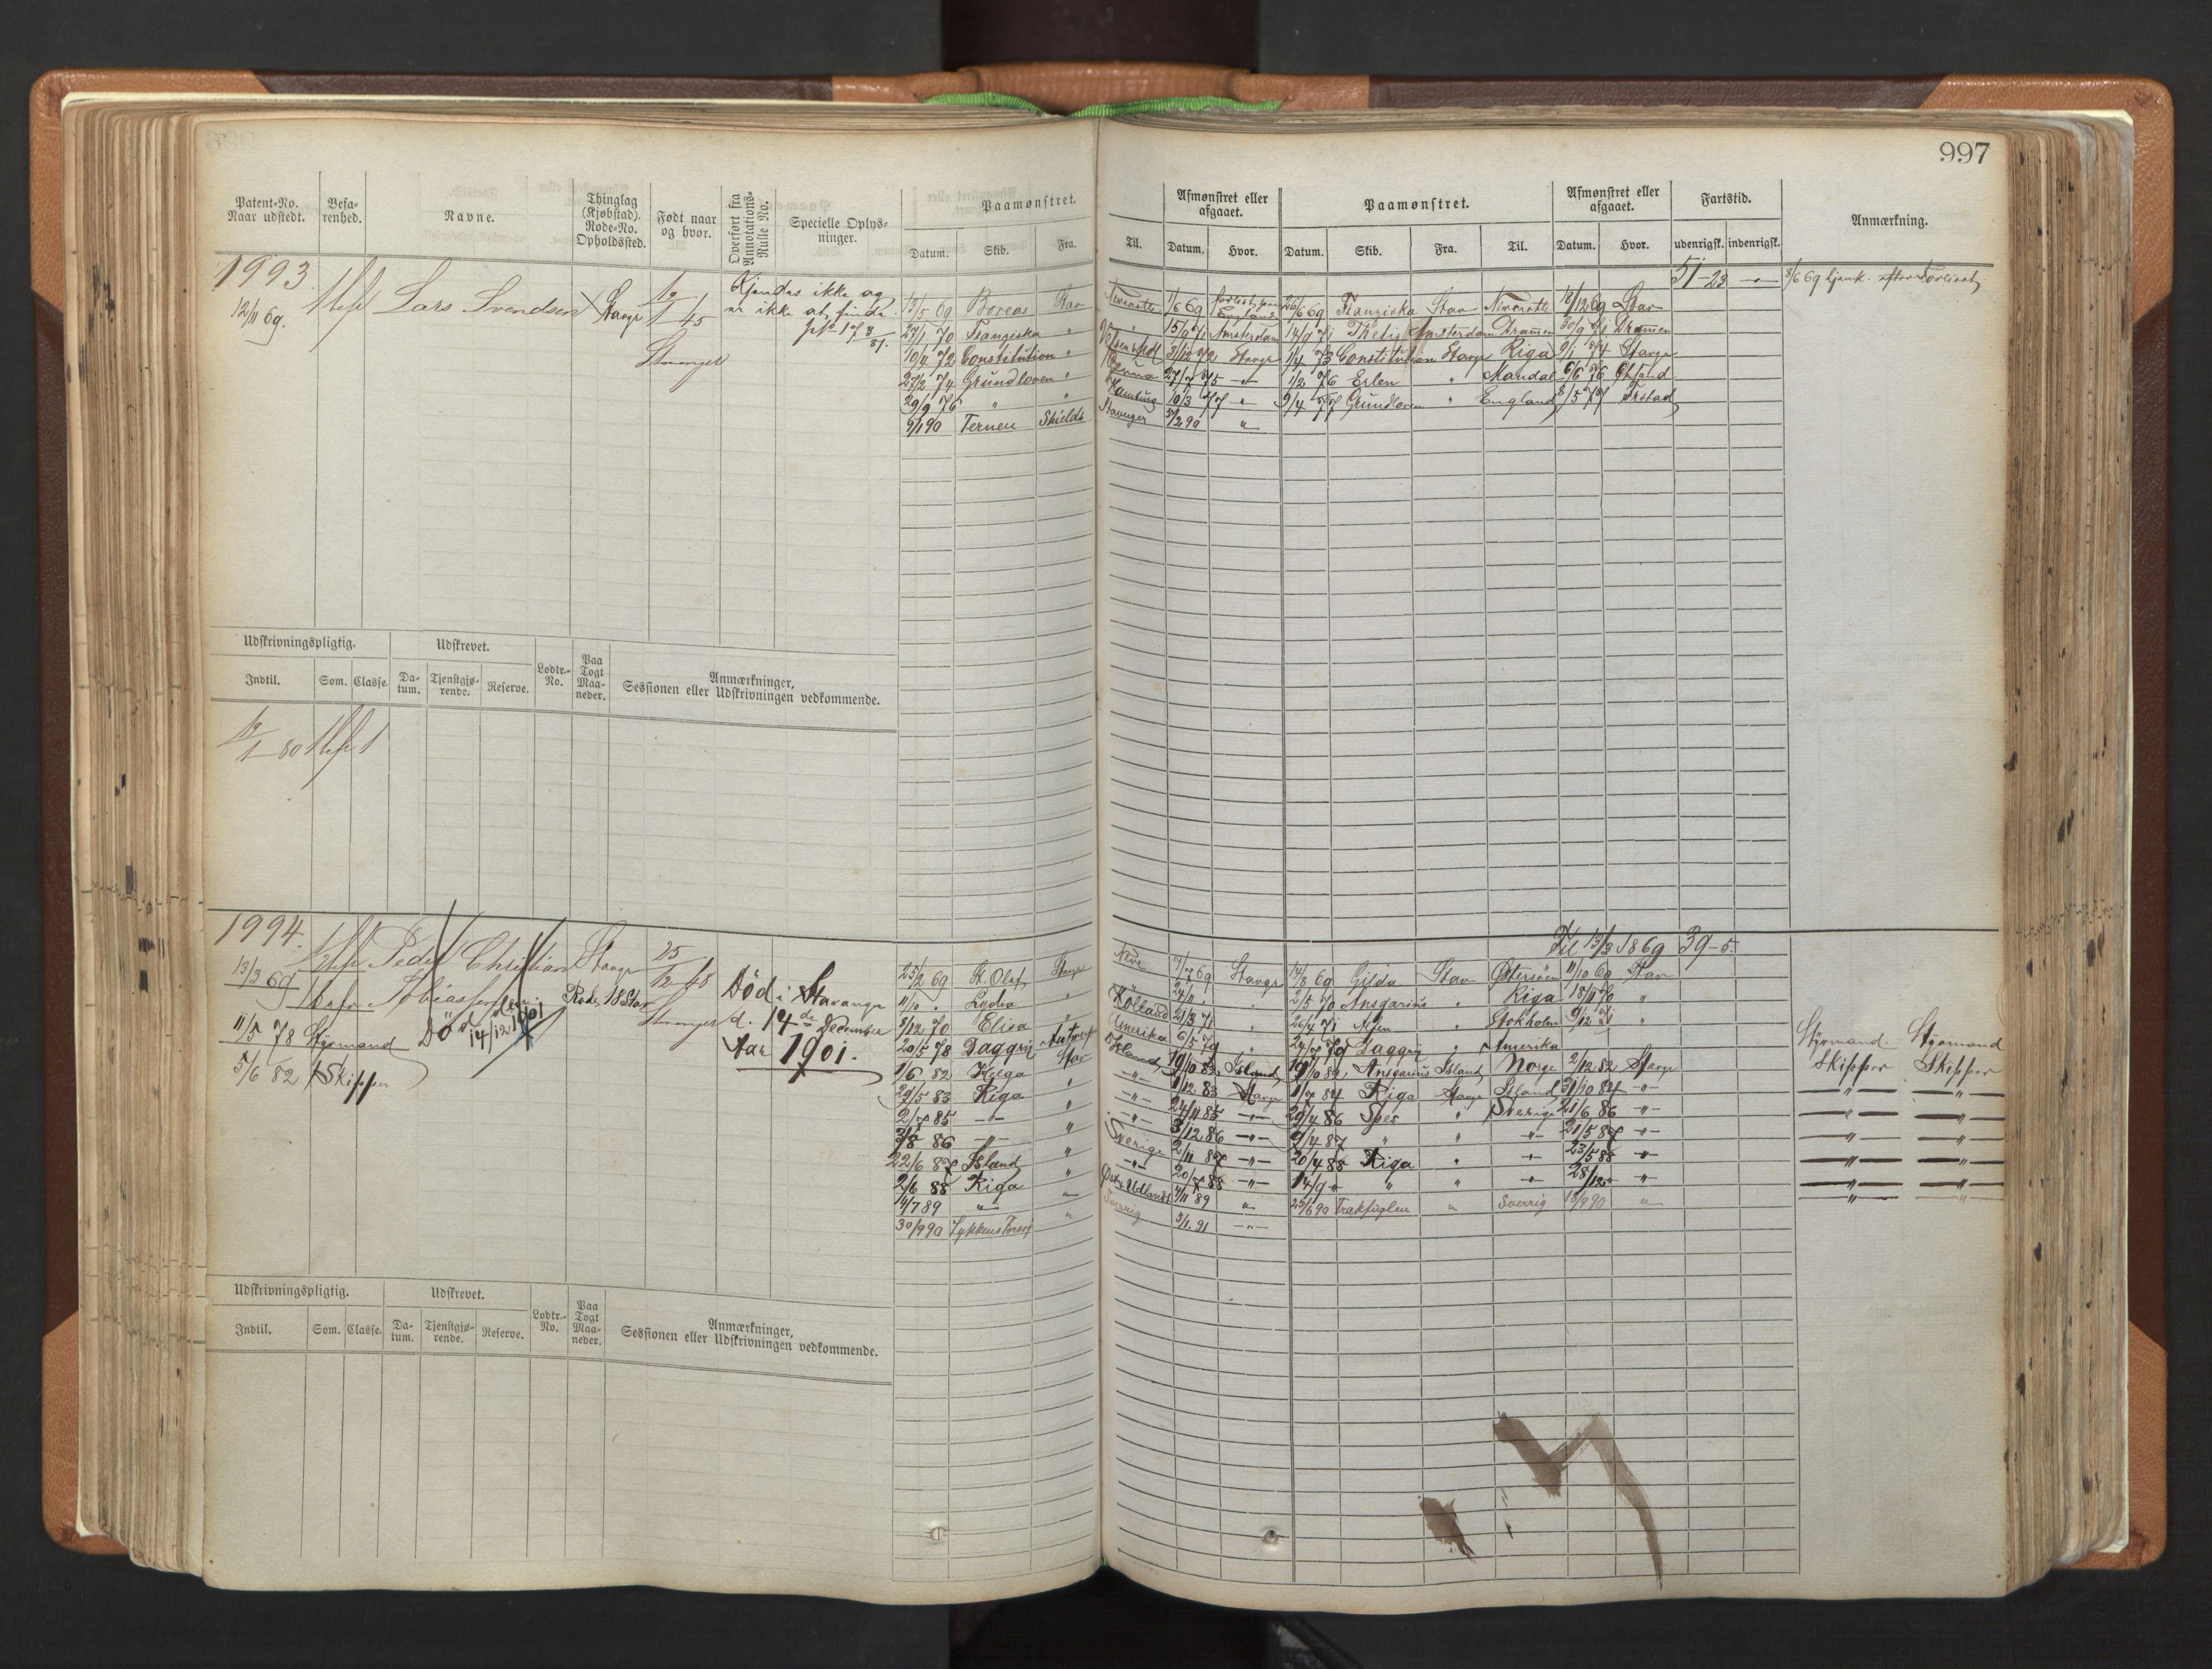 997
Patent-No. Naar udstedt.
Befarenhed.
Navne.
Thinglag (Kjøbstad). Rode-No. Opholdssted.
Født naar og hvor.
Overført fra Annotations-Rulle No.
Specielle Oplysninger.
Paamønstret.
Datum. Skib. Fra. Til.
Afmønstret eller afgaaet.
Datum. Hvor.
Paamønstret.
Datum. Skib. Fra. Til.
Afmønstret eller afgaaet.
Datum. Hvor.
Fartstid.
udenrigsk. indenrigsk.
Anmærkning.
1993.
12/11 69.
Lars Svendsen
Stavgr
19/1 45
Stavanger
Kjendes ikke og
er ikke at finde
51-23 8/6 69 hjemk. efter Forliset
13/5 69 Boreas Stav 1/6 69 26/6 69 Franziska Stav 18/12 69 Stav
27/1 70 Franziska " 15/9 71 Amsterdam 14/9 71 Thetis Amsterdam Drammen 30/9 71 Drammen
10/4 72 Constitution " 31/12 72 Stavgr 1/4 73 Constitution Stavgr Riga 9/1 74 Stavgr
27/2 74 Grundloven " 27/7 75 -"- 1/2 76 Erlen " Mandal 6/6 76
29/9 76 " " Hamburg 10/3 77 " 9/4 77 Grundloven " England 8/5 77
9/1 90 Ternen Shields Stavanger 5/2 90 "
Udskrivningspligtig.
Udskrevet.
Indtil. Som. Classe. Datum. Tjenstgjørende. Reserve.
Lodtr.-No.
Paa Togt Maaneder.
Anmærkninger, Sessionen eller Udskrivningen vedkommende.
19/1 80 1
1994.
13/3 69
Peder Christian
Tobiassen
Stavgr
Rode 18 Stav
25/12 48
Stavanger
Død 14/12 1901
11/5 78 Styrmand
5/6 82 Skipper
Død i Stavanger
d. 14de December
Aar 1901.
Til 13/3 1869 39-5.
25/2 69 St. Olaf Stavgr 7/7 69 Stavgr 14/8 69 Gilda Stav Østersöen 11/10 69 Stav
11/10 " Lydia " 24/11 " " 2/5 70 Ansgarius " Riga 18/11 70 "
9/12 70 Elisa " Holland 21/3 71 " 26/4 71 " Stokholm 9/12 71 "
20/5 78 Daggry Antwerp Amerika 6/5 79 " 24/7 79 Daggry " Amerika Styrmand. Styrmand
1/6 82 Helga Stav Island 19/10 82 Island 19/10 82 Ansgarius Island Norge 2/12 82 Stavgr Skipper Skipper
29/5 83 Riga " -"- 1/12 83 Stavgr 1/7 84 Riga Stavgr Island 31/10 84 -"- -"- -"-
2/7 85 -"- " -"- 24/11 85 -"- 29/4 86 Spes " Sverige 21/6 86 -"- -"- -"-
3/8 86 -"- " -"- 3/12 86 -"- 9/4 87 " " -"- 21/5 87 -"- -"- -"-
22/6 87 Island " Sverige 2/11 87 -"- 20/4 88 Riga " -"- 23/5 88 -"- -"- -"-
2/6 88 Riga " -"- 20/7 88 -"- 14/9 " " " -"- 28/12 " -"- -"-
4/7 89 " " Udlandet 4/11 89 " 25/6 90 Trækfuglen " Sverrig 13/9 90 " -"- -"-
30/9 90 Lykkens Forsøg " Sverrig 5/1 91 -"-
Udskrivningspligtig.
Udskrevet.
Indtil. Som. Classe. Datum. Tjenstgjørende. Reserve.
Lodtr.-No.
Paa Togt Maaneder.
Anmærkninger, Sessionen eller Udskrivningen vedkommende.